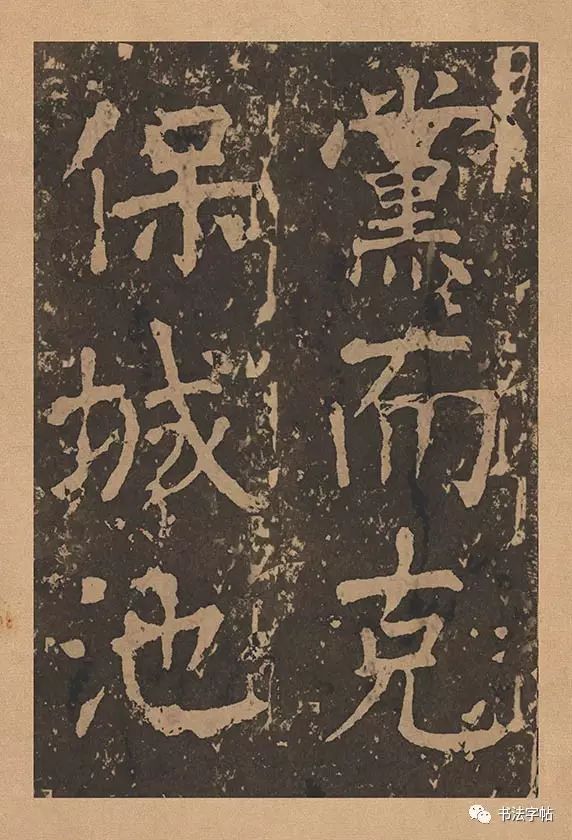 黨而克
保城池
书法字帖